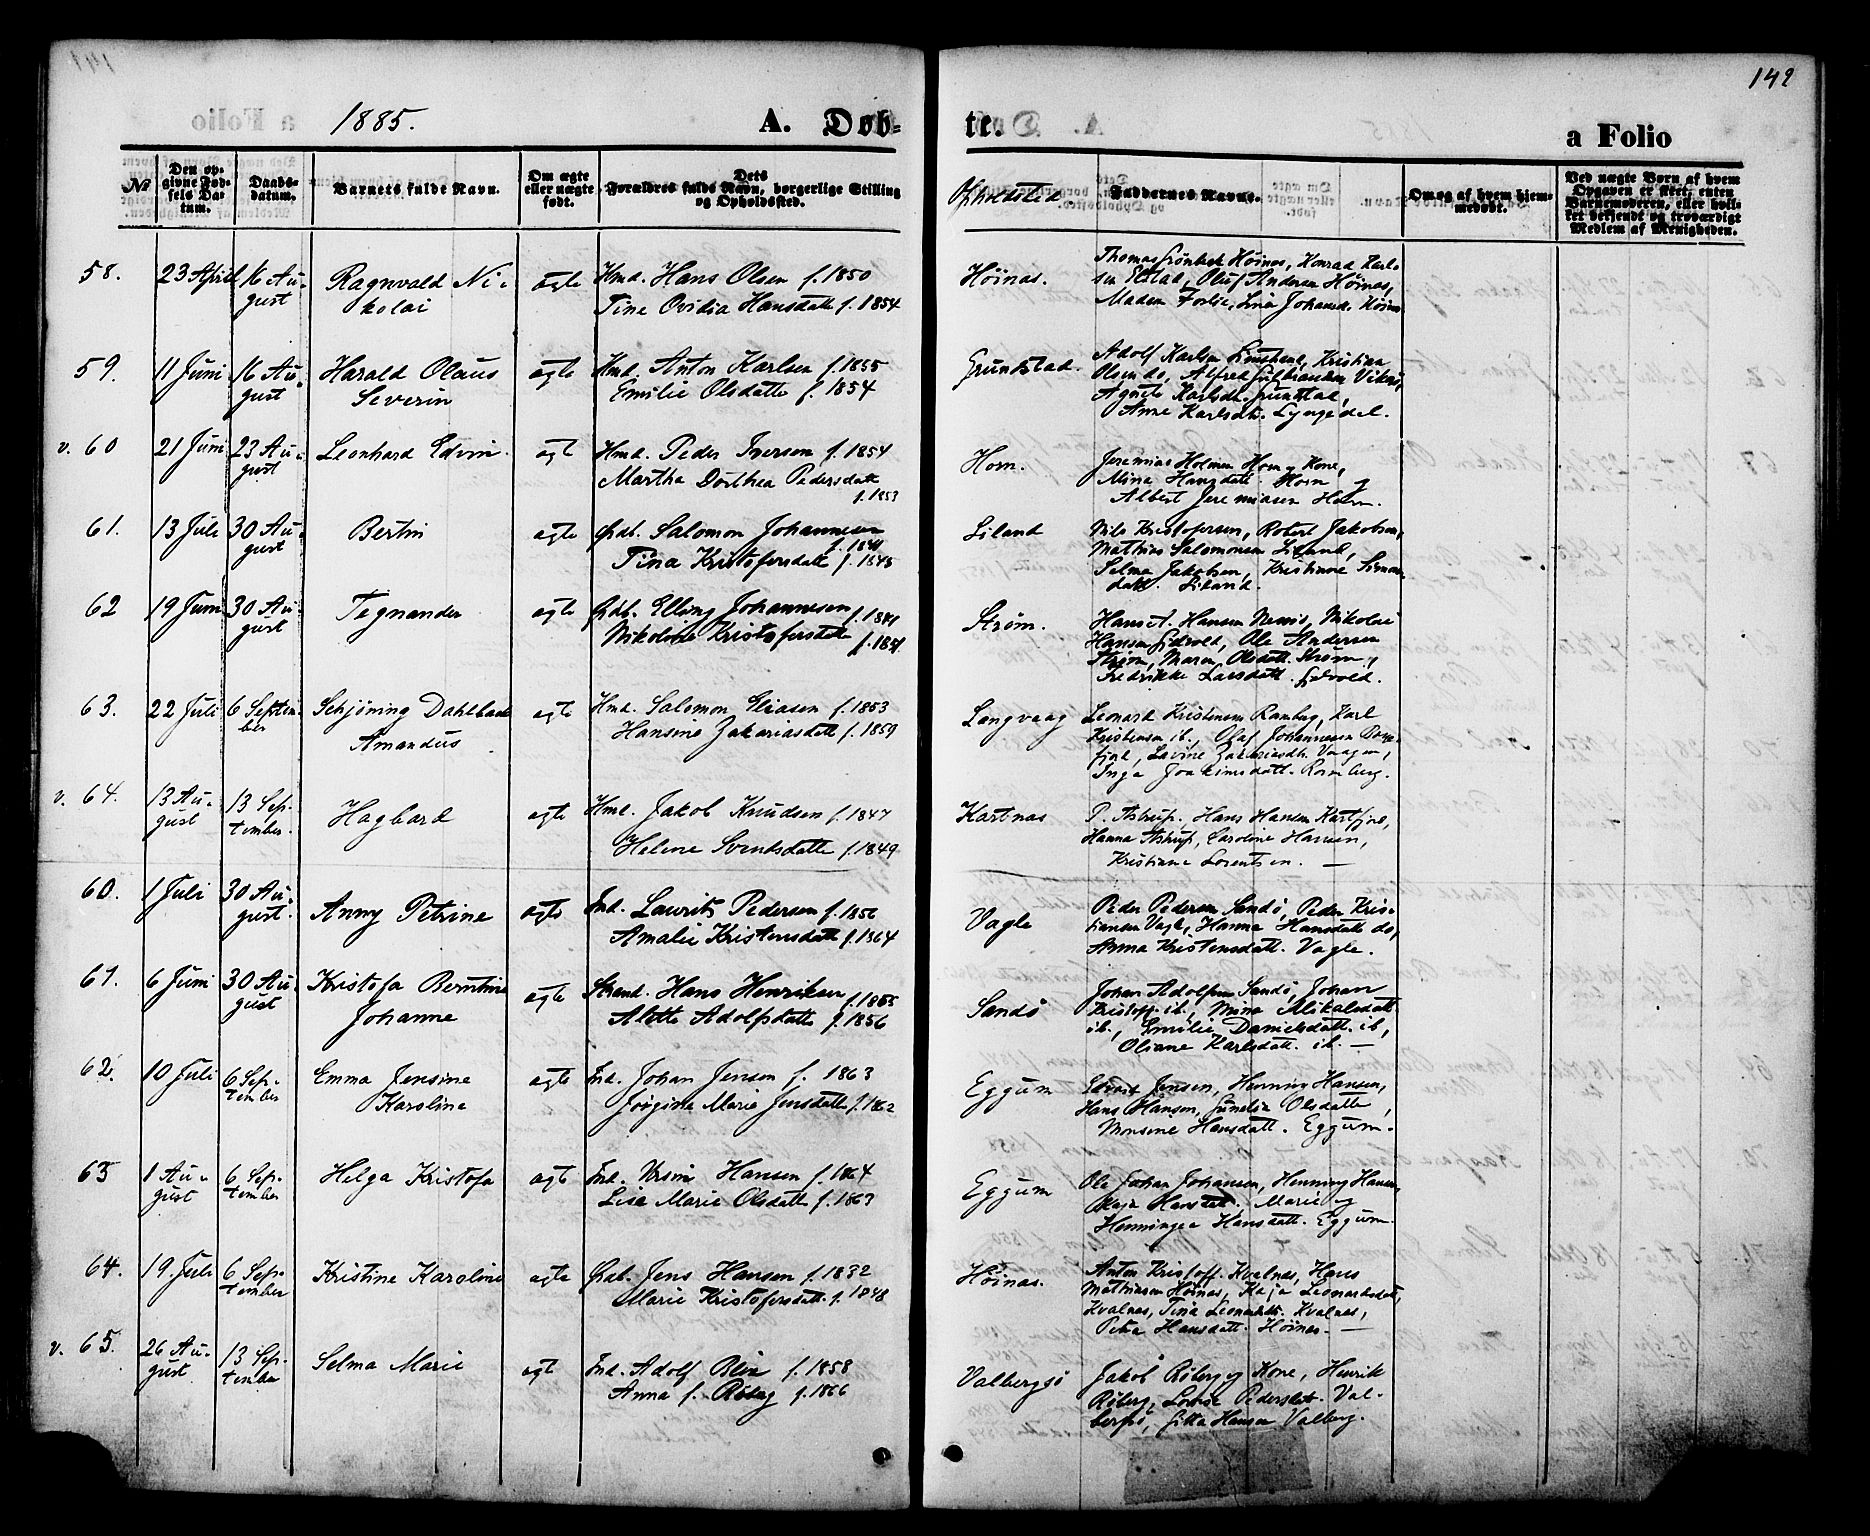 142
1885.
A. Døb-
te.
a Folio
№
Den op-
givne Fød-
sels Da-
tum.
Daabs-
datum.
Barnets fulde Navn.
Om ægte
eller uægte
født.
Dets
Forældres fulde Navn, borgerlige Stilling
og Opholdssted.
Opholdssted.
Faddernes Navne.
Om og af hvem hjem-
medøbt.
Ved uægte Børn af hvem
Opgaven er sket, enten
Barnemoderen, eller hvil-
ket bekjendt og troværdigt
Medlem af Menigheden.
58. 23 April 16 Au-
gust
Ragnvald Ni-
kolai
ægte
Hmd. Hans Olsen f. 1850
Tine Ovidia Hansdatt f. 1854
Höinas.
Thomas Grönbeck Höinas, Konrad Karl-
sen Oluf Andersen Höinas,
Lina Johansd. Höinas
59. 11 Juni 16 Au-
gust
Harald Olaus
Severin
ægte
Hmd. Anton Karlsen f. 1855
Emilie Olsdatte f. 1854
Grundstad.
Adolf Karlsen Kristian
Olsen do, Alfred
Agnete Karlsdt. Grundstad,
Anne Karlsdt. Lyngedal.
v. 60 21 Juni 23 Au-
gust
Leonhard Edvin
ægte
Hmd. Peder Iversen f. 1854
Martha Dorthea Pedersdatt
f. 1853
Horn.
Jeremias Holmen Horn og Kone,
Mina Hansdatt. Horn og
Albert Jeremiasen Horn.
61. 13 Juli 30 Au-
gust
Bertin
ægte
Gbd. Salomon Johannesen
f. 1841
Tina Kristofersdatt f. 1845
Liland
Nils Kristofersen, Robert Jakobsen,
Mathias Salomonsen Liland,
Selma Jakobsen, Kristianne
datt. Liland.
62 19 Juni 30 Au-
gust
Tegnander
ægte
Gbd. Elling Johannesen f. 1841
Nikoline Kristofersdatt f. 1841
Strøm.
Hans A. Hansen Nikolai
Hansen Ole Andersen
Strøm, Maren Olsdatt. Strøm,
Fredrikke Larsdatt.
63. 22 Juli 6 Septem-
ber
Schjöning Dahlback
Amandus
ægte
Hmd. Salomon Eliasen f. 1853
Hansine Zakariasdatt f. 1859
Langvaag
Leonard Kristensen Ramberg, Karl
Kristensen ib., Olaf Johannessen
Lovine Zakariasdt.
Inga Joakimsdatt.
v. 64. 13 Au-
gust
13 Sep-
tember.
Hagbard
ægte
Hmd. Jakob Knudsen f. 1847
Helene Svendsdatte f. 1849
Kartnas
P. Astrup, Hans Hansen Kartfjne,
Hanna Astrup, Caroline Hansen,
Kristiane Lorentsen. —
60. 1 Juli 30 Au-
gust.
Anny Petrine
ægte
Ind. Laurits Pedersen f. 1856
Amalie Kristensdatt f. 1864
Vagle
Peder Pedersen Sandö, Peder Kris-
tiansen Vagle, Hanna Hansdatt do,
Anna Kristensdatt. Vagle.
61. 6 Juni 30 Au-
gust
Kristofa Berntine
Johanne
ægte
Strand. Hans Henriksen f. 1855
Alette Adolfsdatte f. 1856
Sandö
Johan Adolfsen Sandö, Johan
Kristoff. ib., Mina Mikalsdatt
ib., Emilie Danielsdatt. ib,
Oliane Karlsdatt. ib. —
62. 10 Juli 6 Sep-
tember
Emma Jensine
Karoline
ægte
Ind. Johan Jensen f. 1863
Jörgine Marie Jensdatte f. 1862
Eggum
Edvard Jensen, Henning Hansen,
Hans Hansen, Gunelia Olsdatte,
Monsine Hansdatt. Eggum.
63 1 Au-
gust
6 Sep-
tember
Helga Kristofa
ægte
Ind. Ursin Hansen f. 1864
Lisa Marie Olsdatt f. 1863
Eggum
Ole Johan Johansen, Henning Hansen,
Maja Hansdatt. Marie og
Henningea Hansdatt. Eggum.
64. 19 Juli 6 Sep-
tember
Kristine Karoline
ægte
Gbd. Jens Hansen f. 1832
Marie Kristofersdatt. f. 1848
Höinas.
Anton Kristoff. Kvalnes, Hans
Mathiasen Höinas, Kaja Leonardsdatt,
Kvalnes, Tina Leonardsdt. Kvalnes,
Petra Hansdatt. Höinas. —
v. 65. 26 Au-
gust
13 Sep-
tember
Selma Marie
ægt
Ind. Adolf Blix f. 1858
Anna f. Röberg f. 1866
Valbergsö
Jakob Röberg og Kone, Henrik
Röberg, Lovise Pedersdat. Val-
bergsö, Gitta Hansen Valberg.